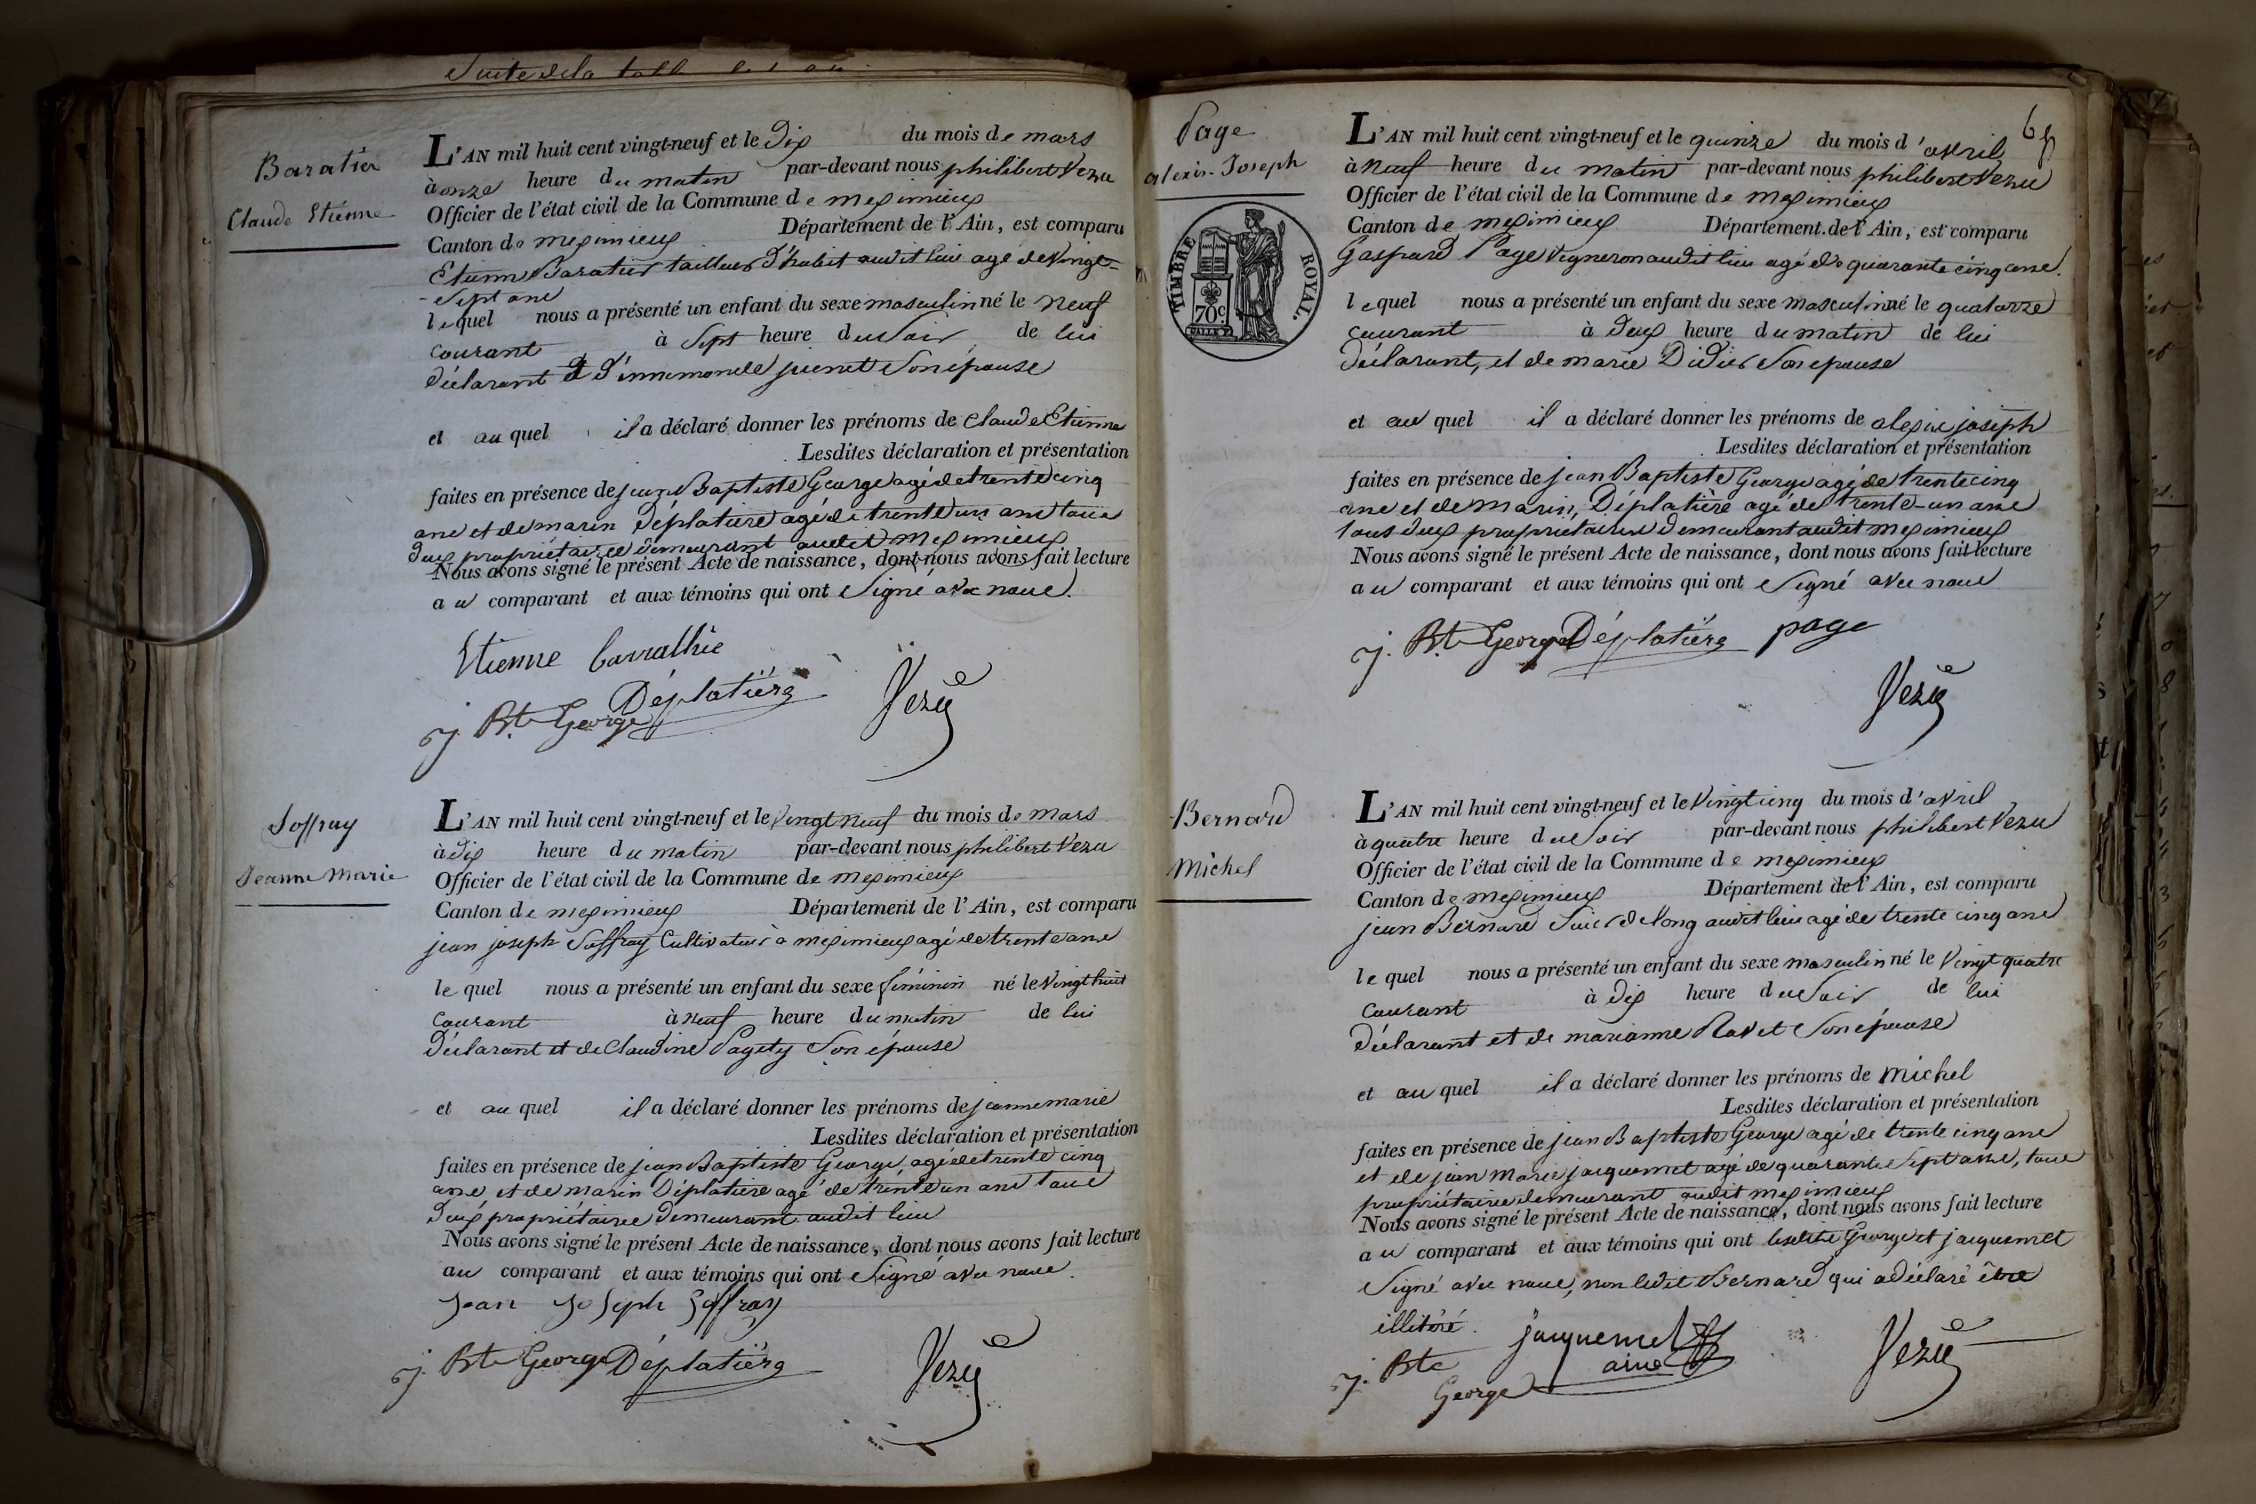 Suite de la
Baratier
Claude Etienne
L'AN mil huit cent vingt-neuf et le dix du mois de mars
à onze heure du matin par-devant nous philibert Vezu
Officier de l'état civil de la Commune de meximieux
Canton de meximieux Département de l'Ain, est comparu
Etienne Baratier tailleur d'habit audit lieu agé de vingt-
-sept ans
lequel nous a présenté un enfant du sexe masculin né le neuf
courant à sept heure du soir de lui
déclarant et d'innemonde juenet son épouse
et au quel il a déclaré donner les prénoms de Claude Etienne
Lesdites déclaration et présentation
faites en présence de jean Baptiste George agé de trente cinq
ans et de marin Déplatière agé de trente un ans tous
deux propriétaires demeurant audit meximieux
Nous avons signé le présent Acte de naissance, dont nous avons fait lecture
au comparant et aux témoins qui ont signé avec nous.
Etienne barrathie
Déplatière
j. Bte George
Vezu
Joffray
Jeanne Marie
L'AN mil huit cent vingt-neuf et le vingt neuf du mois de mars
à dix heure du matin par-devant nous philibert Vezu
Officier de l'état civil de la Commune de meximieux
Canton de meximieux Département de l'Ain, est comparu
jean joseph Joffray Cultivateur à meximieux agé de trente ans
lequel nous a présenté un enfant du sexe féminin né le vingt huit
courant à neuf heure du matin de lui
déclarant et de Claudine Pagety son épouse
et au quel il a déclaré donner les prénoms de jeanne marie
Lesdites déclaration et présentation
faites en présence de jean Baptiste George, agé de trente cinq
ans, et de marin Déplatière agé de trente un ans tous
deux propriétaires demeurant audit lieu
Nous avons signé le présent Acte de naissance, dont nous avons fait lecture
au comparant et aux témoins qui ont signé avec nous.
Jean Joseph Joffray
j. Bte George Déplatière
Vezu
65
Page
alexis-Joseph
TIMBRE ROYAL.
70c
L'AN mil huit cent vingt-neuf et le quinze du mois d'avril
à neuf heure du matin par-devant nous philibert Vezu
Officier de l'état civil de la Commune de meximieux
Canton de meximieux Département de l'Ain, est comparu
Gaspard Page vigneron audit lieu agé de quarante cinq ans.
lequel nous a présenté un enfant du sexe masculin né le quatorze
courant à deux heure du matin de lui
déclarant, et de marie Didier son épouse
et au quel il a déclaré donner les prénoms de alexis joseph
Lesdites déclaration et présentation
faites en présence de jean Baptiste George agé de trente cinq
ans et de marin, Déplatière agé de trente-un ans
tous deux propriétaires demeurant audit meximieux
Nous avons signé le présent Acte de naissance, dont nous avons fait lecture
au comparant et aux témoins qui ont signé avec nous
j. Bte George Déplatière page
Vezu
Bernard
Michel
L'AN mil huit cent vingt-neuf et le vingt cinq du mois d'avril
à quatre heure du soir par-devant nous philibert Vezu
Officier de l'état civil de la Commune de meximieux
Canton de meximieux Département de l'Ain, est comparu
jean Bernard scieur de long audit lieu agé de trente cinq ans
lequel nous a présenté un enfant du sexe masculin né le vingt quatre
courant à dix heure du soir de lui
déclarant et de marianne Ravet son épouse
et au quel il a déclaré donner les prénoms de Michel
Lesdites déclaration et présentation
faites en présence de jean Baptiste George agé de trente cinq ans
et de jean Marie jacquemet agé de quarante sept ans, tous
propriétaires demeurant audit meximieux
Nous avons signé le présent Acte de naissance, dont nous avons fait lecture
au comparant et aux témoins qui ont lesdits George et jacquemet
signé avec nous, non ledit Bernard qui a déclaré être
illitéré.
j. Bte George
jacquemet ainé
Vezu